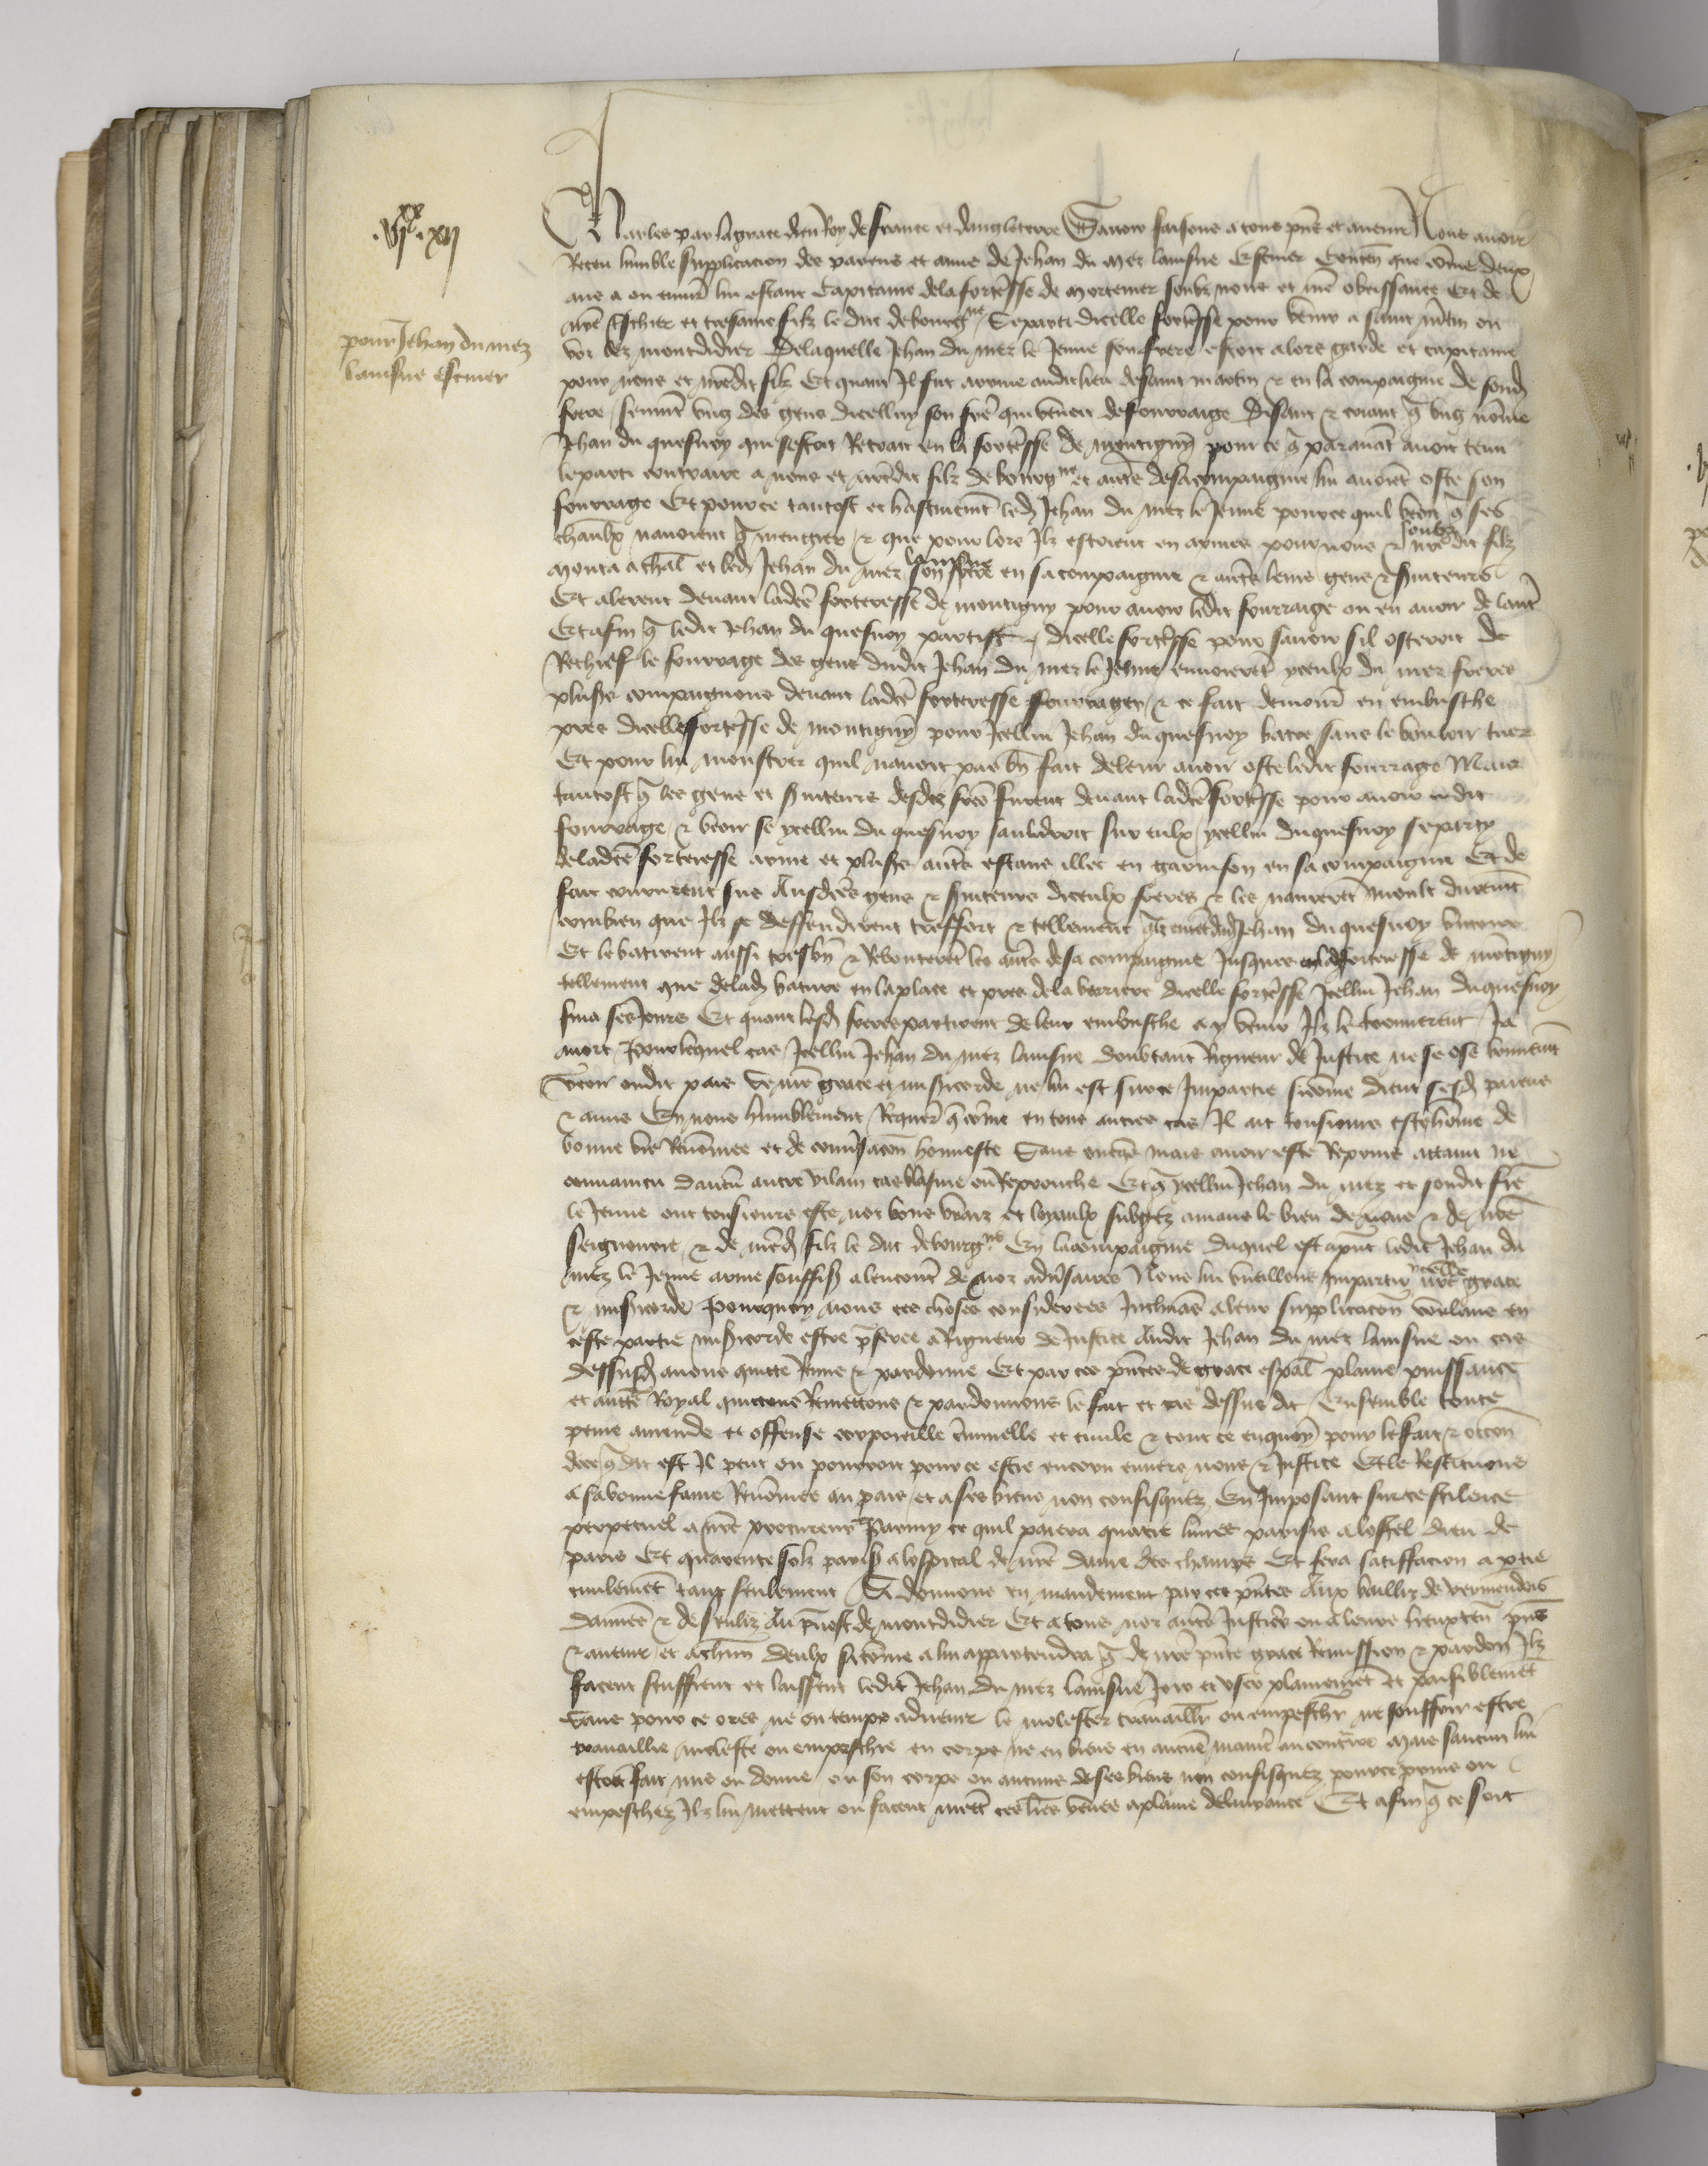 .VIIxx.XII
pour Jehan du mez
laisne escuier
Charles par la grace dieu Roy de france et dangleterre Savoir faisons a tous pñs et avenir Nous avoir
Receu humble supplicacion des parens et amis de Jehan du mez laisne Escuier Conteñ que cõme deux
ans a ou enuirõ lui estant Capitaine de la fortesse de mortemer soubz nous et nrẽ obeissance Et de
nrẽ treschier et tresame filz le duc de bourgne Se parti dicelle fortesse pour venir a saint mrtin ou
bos lez montdidier De laquelle Jehan du mez le Jeune son frere estoit alors garde et capitaine
pour nous et nrẽdit filz Et quant Il fut arrive audit lieu de saint martin & en la compaignie de sond
frere / seurvit vng des gens dicellui son fre qui venoit de fourraige Disant & criant q vng nõme
Jehan du quesnoy qui sestoit Retrait en la fortesse de montigny pour ce q paravãt avoit tenu
le parti contraire a nous et nrẽdit filz de bourgne et autrẽ de sa compaignie lui avoiẽt oste son
fourrage Et pour ce tantost et hastivemẽt led Jehan du mez le Jeune pour ce quil veoit q ses
chevaulx navoient q mengier / & que pour lors Ilz estoient en armes pour nous & soubz nrẽdit filz
monta a chal et led Jehan du mez laisne son frere en sa compaignie & autrẽ leurs gens & sviteurs
Et alerent devant ladcẽ forteresse de montigny pour avoir ledit fourraige ou en avoir de lautre
Et afin q ledit Jehan du quesnoy partist dicelle fortesse pour savoir sil osteroit de
Rechief le fourrage des gens dudit Jehan du mez le Jeune envoierẽt yceulx du mez freres
plusrs compaignons devant ladcẽ forteresse fourrager / & ce fait demourẽ en embusche
pres dicelle fortesse de montigny pour Icellui Jehan du quesnoy batre sans le vouloir tuer
Et pour lui monstrer quil navoit pas bñ fait de leur avoir oste ledit fourrage Mais
tantost q les gens et sviteurs desdiz freres furent devant ladcẽ fortesse pour avoir ledit
fourrage / & veoir se ycellui du quesnoy sauldroit sur eulx / ycellui du quesnoy se party
de ladcẽ forteresse arme et plusrs autrẽ estans illec en garnison en sa compaignie Et de
fait coururent sus Ausdcẽs gens & sviteurs diceulx freres & les navrerẽt moult duremẽt
combien que Ilz se deffendirent tresfort & tellement Jehan du quesnoy
Et le batirent aussi tresbñ & Rebouterẽt les autrẽ de sa compaignie Jusques en la forteresse de mõtigny
tellement que de lad bature en la place et pres de la barriere dicelle fortesse Icellui Jehan du quesnoy
fina ses Jours Et quant lesd freres partirent de leur embusche a y venir Ilz le trouverent Ja
mort Pour lequel cas / Icellui Jehan du mez laisne doubtant Rigueur de Justice ne se ose bonnemẽt
veoir ou dit pais se nrẽ grace et misericorde ne lui est sur ce Impartie sicõme dient sesd parens
& amis En nous humblement Requerẽ q cõme en tous autres cas / Il ait tousiours este hõme de
bonne vie Renõmee et de conversacõn honneste Sans onqs mais avoir este Reprins attaint ne
convaincu daucũ autre vilain cas blasme ou Reprouche Et q ycellui Jehan du mez et sondit fre
le Jeune ont tousiours este noz bons vrais et loyaulx subgetz amans le bien de nous & de nrẽ
seignourie & de nrẽd filz le duc de bourgne En la compaignie duquel est apnt ledit Jehan du
mez le Jeune arme souffiss a lencontr de noz adversaires Nous lui vueillons Impartir ycelle nrẽ grace
& misericorde Pourquoy nous ces choses considerees Inclinãs a leur supplicacõn voulans en
ceste partie misericorde estre pferee a Rigueur de Justice Audit Jehan du mez laisne ou cas
dessusd avons quicte Remis & pardonne Et par ces pñtes de grace espal plaine puissance
et aucte Royal quictons Remettons & pardonnons le fait et cas dessus dit Ensemble toute
peine amende et offense corporelle criminelle et civile & tout ce enquoy pour le fait & occõn
dece q dit est Il peut ou pourroit pour ce estre encouru envers nous & Justice Et le Restituons
a sa bonne fame Renõmee au pais / et a ses biens non confisquez En Imposant sur ce scilence
perpetuel a nrẽ procureur Parmy ce quil paiera quatre livres parisis a lostel dieu de
paris Et quarante solz paris a lospital de nrẽ dame des champs Et fera satisfacion a ptie
civilemẽt tant seulement Si donnons en mandement par ces pñtes Aux bailliz de vermendois
damiens & de senliz Au pvost de montdidier Et a tous noz autrẽ Justicrs ou a leurs lieuxteñ pñs
& avenir / et a chũn deulx sicõme a lui appartendra q de nrẽ pñte grace Remission & pardon Ilz
facent seuffrent et laissent ledit Jehan du mez laisne Joir et vser plainemẽt & paisiblemẽt
Sans pour ce ores ne ou temps advenir le molester travaillr ou empeschr ne souffrir estre
travaillie moleste ou empeschie en corps ne en biens en aucũe maniẽ au contraire Mais saucun lui
estoit fait mis ou donne / ou son corps ou aucuns de ses biens non confisquez pour ce prins ou
empeschez Ilz lui mettent ou facent mettr ces lrẽs veues a plaine delivrance Et afin q ce soit